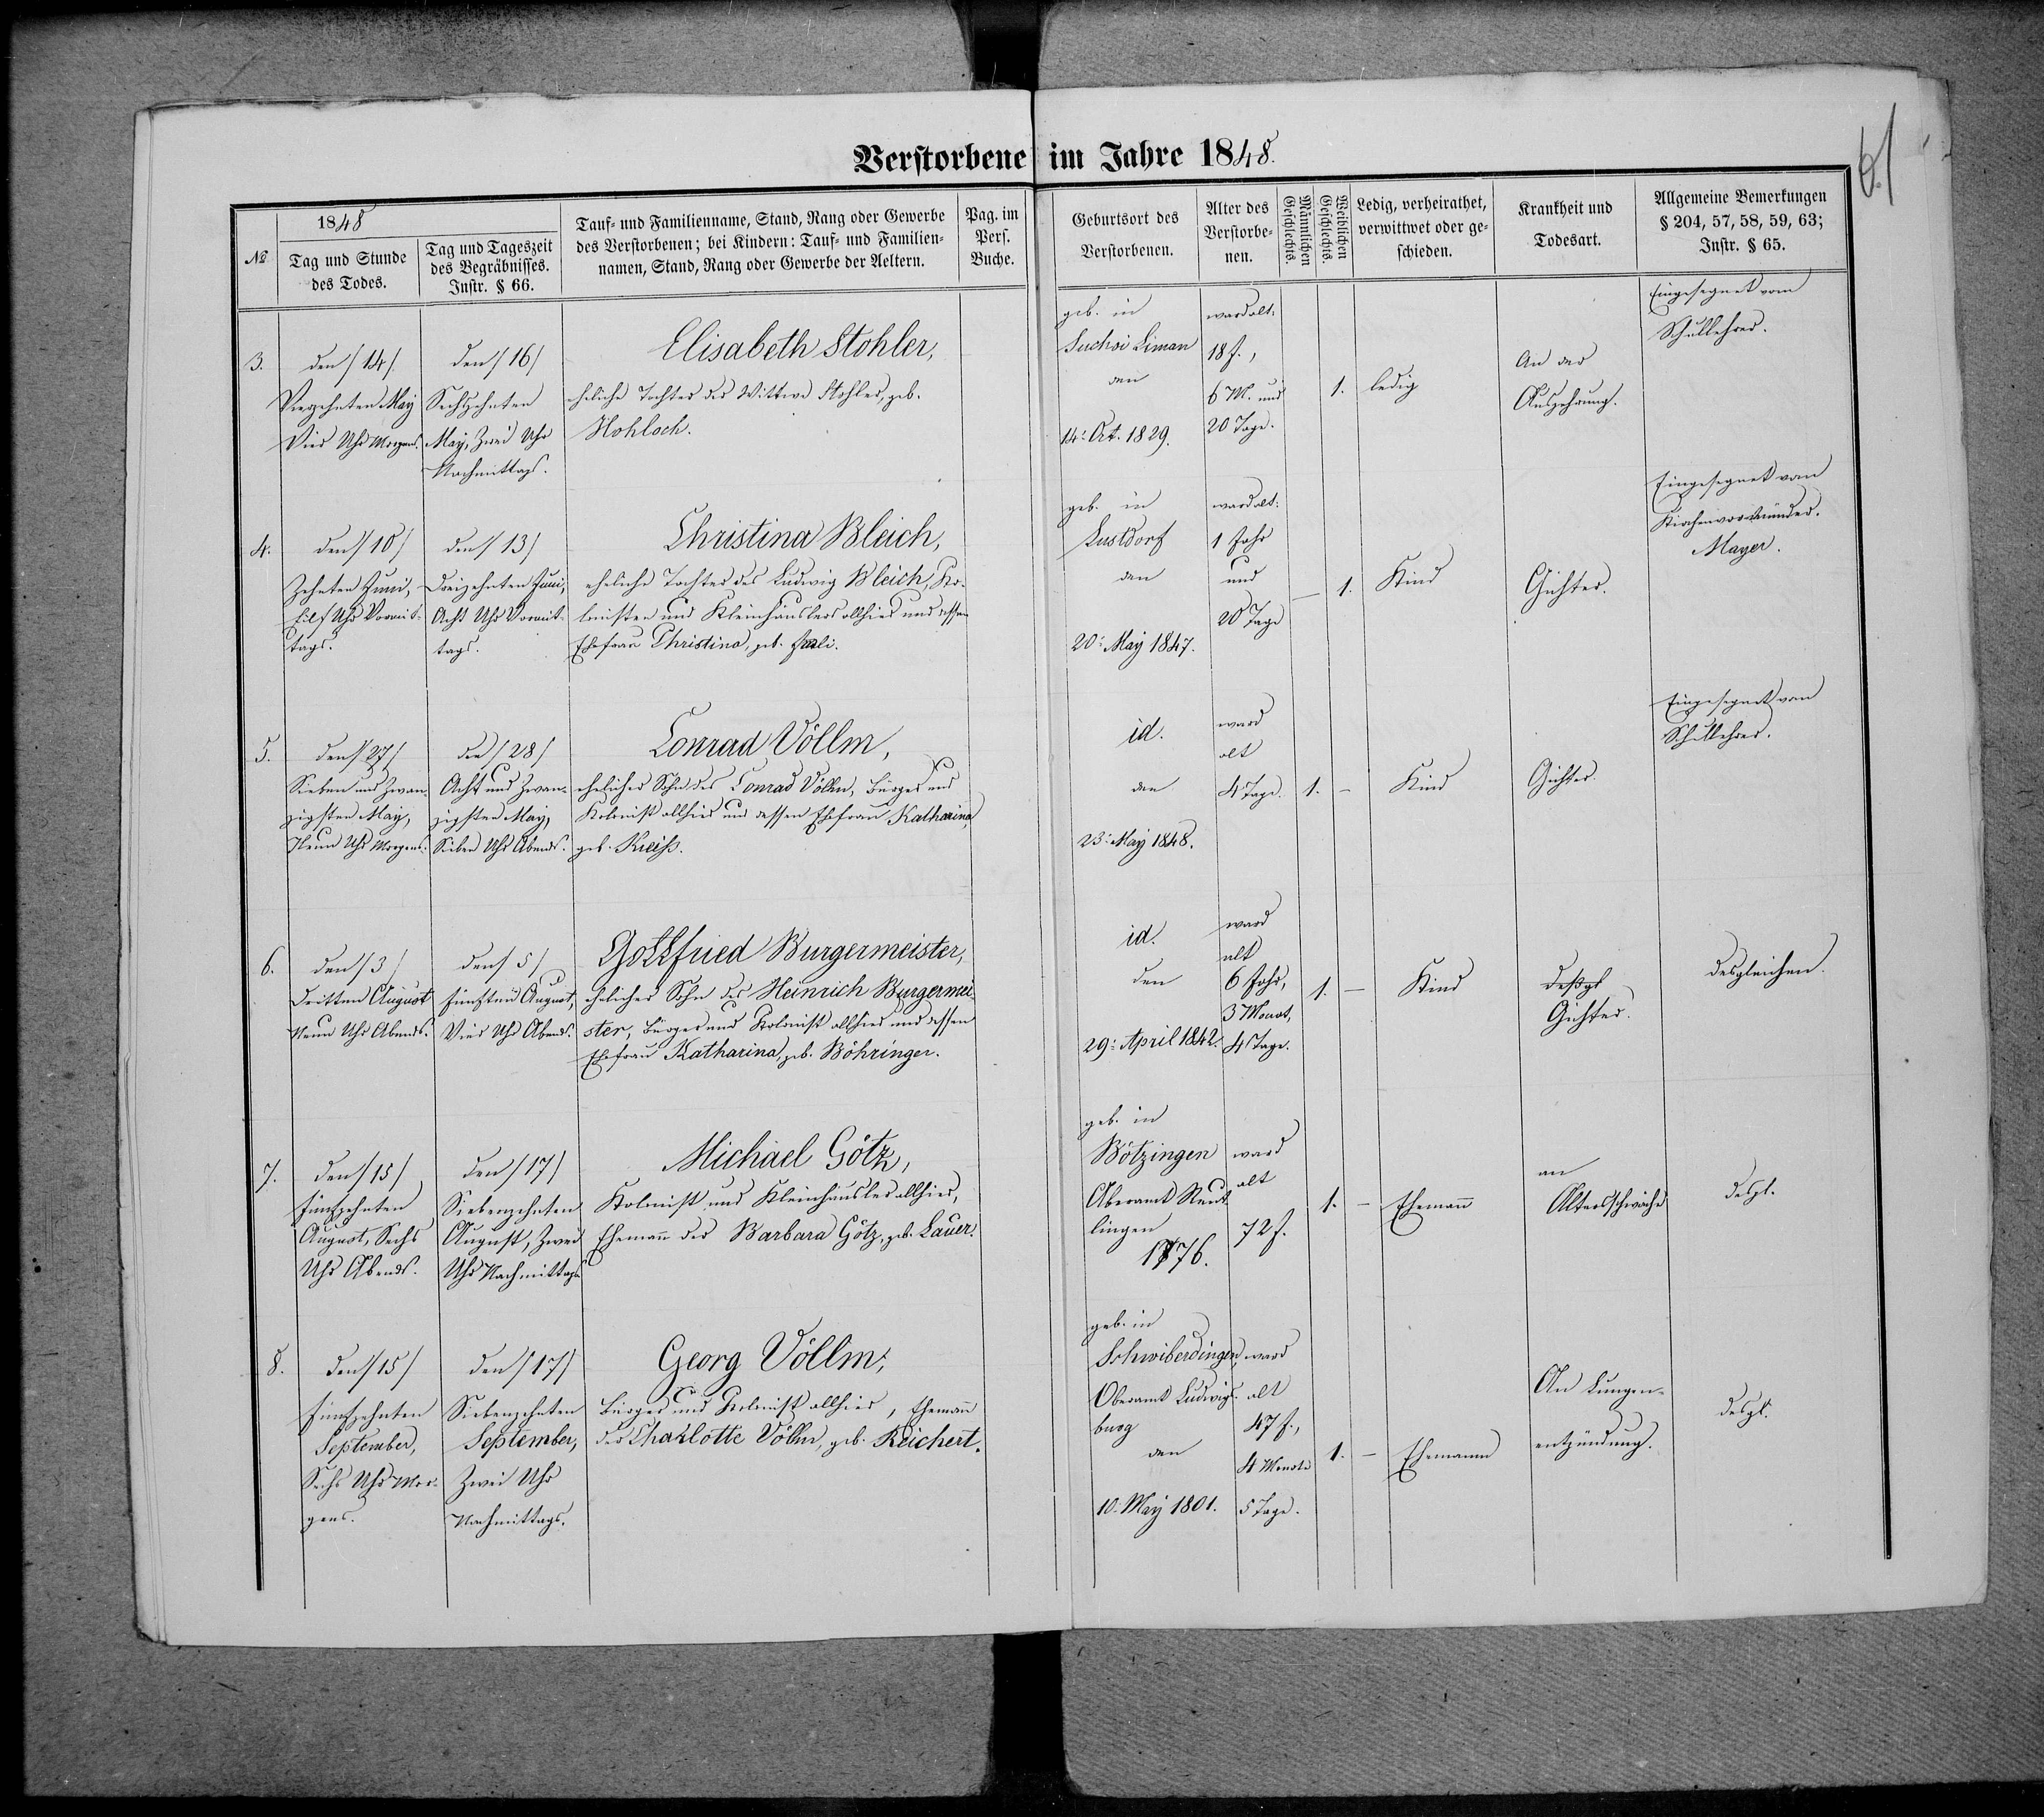 Verstorbene im Jahre 1848.
61
№
1848
Tag und Stunde
des Todes.
Tag und Tageszeit
des Begräbnisses.
Instr. § 66.
Tauf- und Familienname, Stand, Rang oder Gewerbe
des Verstorbenen; bei Kindern: Tauf- und Familien-
namen, Stand, Rang oder Gewerbe der Aeltern.
Pag. im
Pers.
Buche.
Geburtsort des
Verstorbenen.
Alter des
Verstorbe-
nen.
Männlichen
Geschlechts.
Weiblichen
Geschlechts.
Ledig, verheirathet,
verwittwet oder ge-
schieden.
Krankheit und
Todesart.
Allgemeine Bemerkungen
§ 204, 57, 58, 59, 63;
Instr. § 65.
3.
den /14/
Vierzehnten May
Vier Uhr Morgens.
den /16/
Sechzehnten
May, Zwei Uhr
Nachmittags.
Elisabeth Stohler,
eheliche Tochter der Wittwe Stohler, geb.
Hohloch.
geb. in
Suchoi Liman
den
14: Oct. 1829.
ward alt:
18 J.,
6 M. und
20 Tage.
1.
ledig
An der
Auszehrung.
Eingesegnet vom
Schullehrer.
4.
den /10/
Zehnten Juni,
Eilf Uhr Vormit-
tags.
den /13/
Dreizehnten Juni,
Acht Uhr Vormit-
tags.
Christina Bleich,
eheliche Tochter des Ludwig Bleich, Ko-
lonisten und Kleinhäuslers allhier und dessen
Ehefrau Christina, geb.
geb. in
Lustdorf
den
20: May 1847.
ward alt:
1 Jahr
und
20 Tage
— 1.
Kind
Gichter.
Eingesegnet vom
Kirchenvormünder.
Mayer.
5.
den /27/
Sieben und Zwan-
zigsten May,
Neun Uhr Morgens.
den /28/
Acht und Zwan-
zigsten May,
Sieben Uhr Abends.
Conrad Völlm,
ehelicher Sohn des Conrad Völlm, Bürger und
Kolonist allhier und dessen Ehefrau Katharina,
geb. Kreiß.
id.
den
23: May 1848.
ward
alt
4 Tage.
1. —
Kind
Gichter.
Eingesegnet vom
Schullehrer.
6.
den /3/
Dritten August
Neun Uhr Abends.
den /5/
Fünften August,
Vier Uhr Abends.
Gottfried Burgermeister,
ehelicher Sohn des Heinrich Burgermei-
ster, Bürger und Kolonist allhier und dessen
Ehefrau Katharina, geb. Böhringer.
id.
den
29: April 1842.
ward
alt
6 Jahr,
3 Monat,
4 Tage.
1. —
Kind
deßgl.
Gichter.
desgleichen.
7.
den /15/
Fünfzehnten
August, Sechs
Uhr Abends.
den /17/
Siebenzehnten
August, Zwei
Uhr Nachmittags
Michael Götz,
Kolonist und Kleinhäusler allhier,
Ehemañ der Barbara Götz, geb. Lauer.
geb. in
Bötzingen
Oberamt Reut-
lingen
1776.
ward
alt
72 J.
1. —
Ehemañ
an
Altersschwäche
desgl.
8.
den /15/
Fünfzehnten
September,
Sechs Uhr Mor-
gens.
den /17/
Siebenzehnten
September,
Zwei Uhr
Nachmittags.
Georg Völlm,
Bürger und Kolonist allhier, Ehemañ
der Charlotte Völlm, geb. Reichert.
geb. in
Schwiberdingen,
Oberamt Ludwigs-
burg
den
10. May 1801.
ward
alt
47 J.,
4 Monate
5 Tage.
1. —
Ehemann
An Lungen-
entzündung.
desgl.